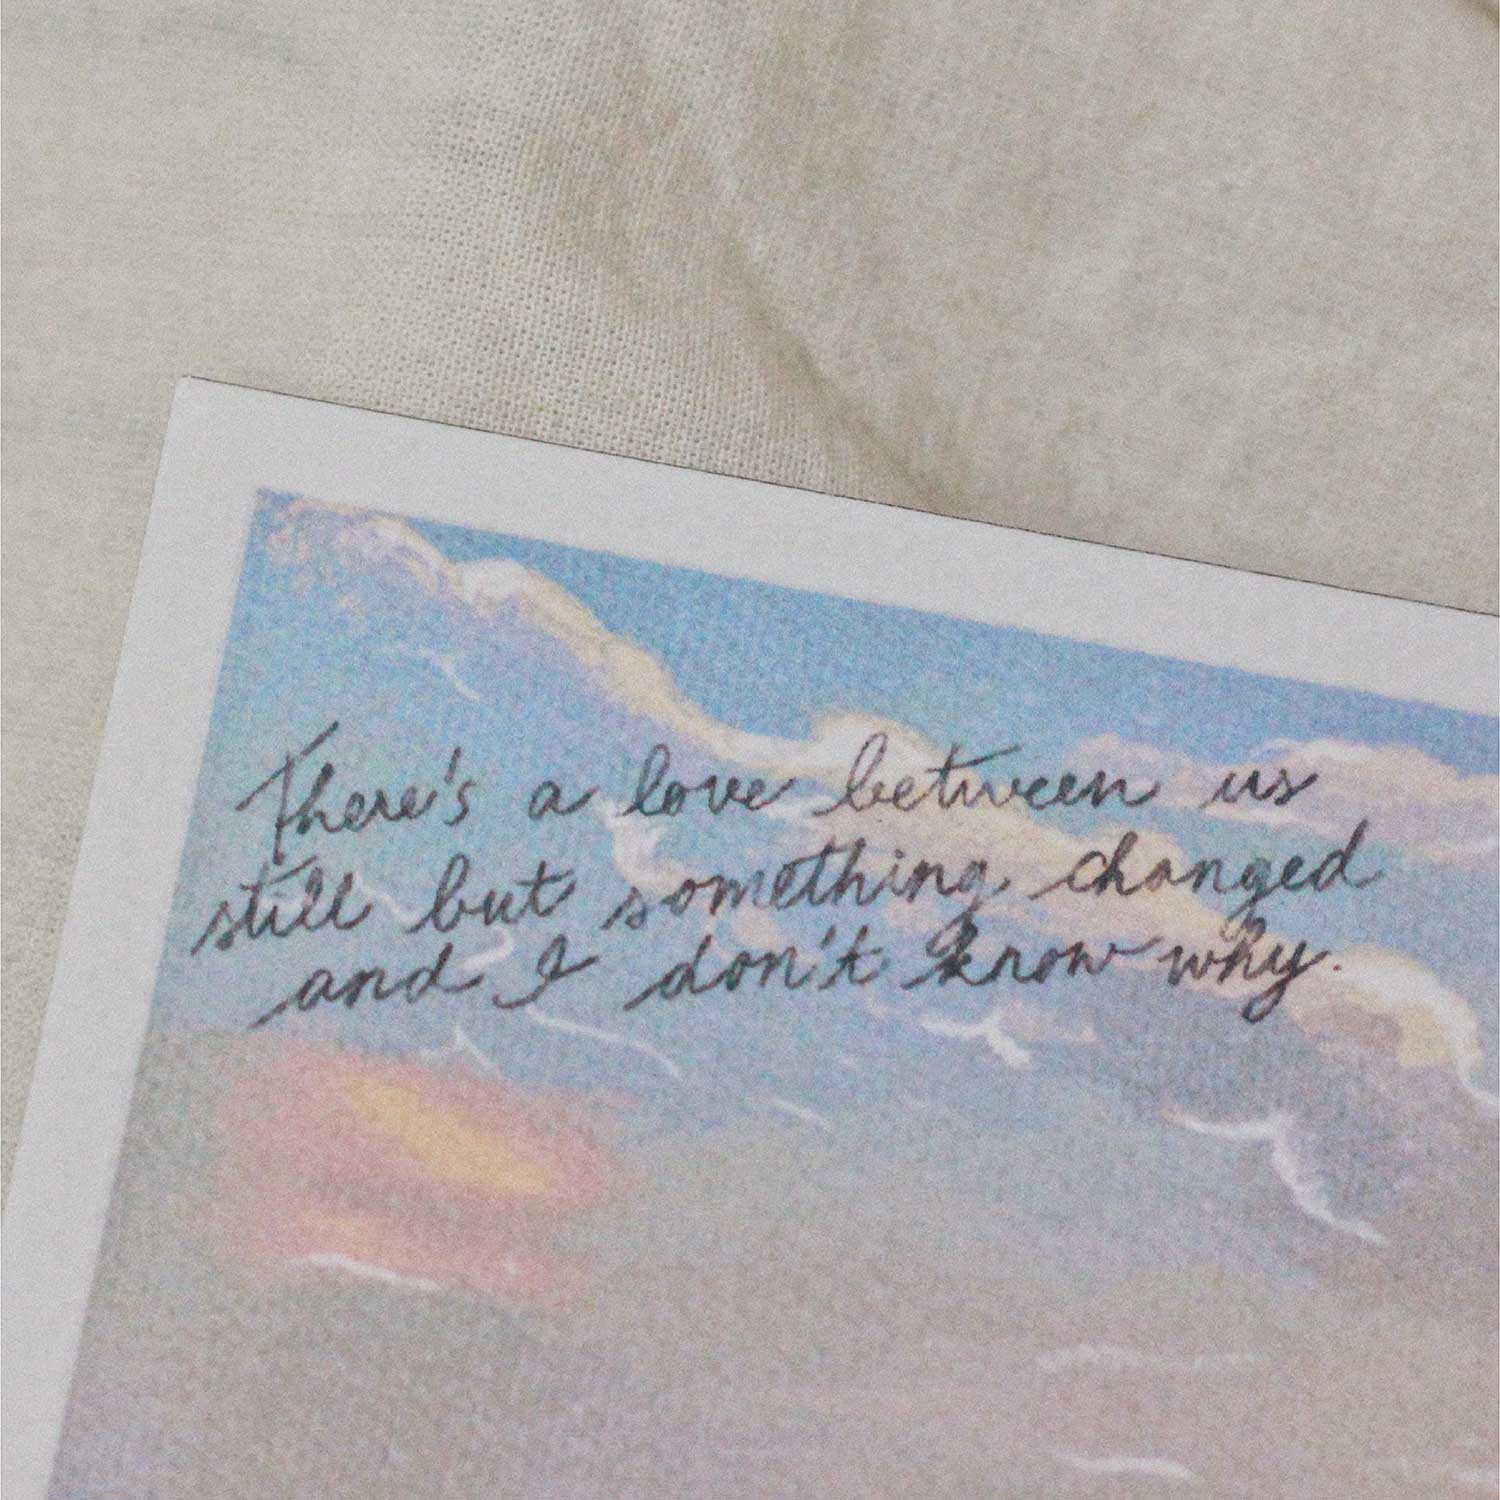 There's a love between us
still but something changed
and I don't know why.